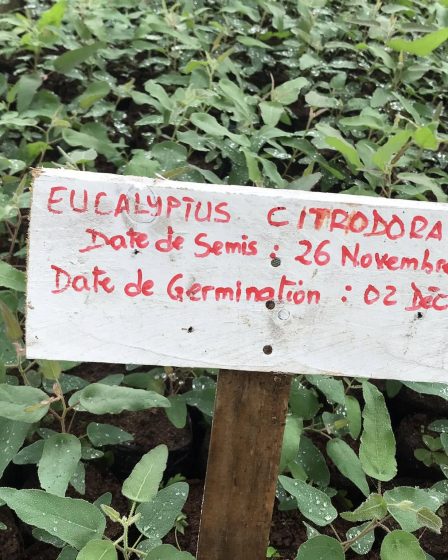 EUCALYPTUS CITRODORA
Date de Semis : 26 Novembre
Date de Germination : 02 Déc